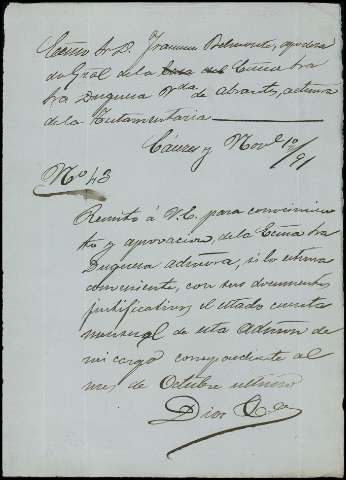 Excmo Sr D. Francisco Belmonte, apodera
do Gral de la Casa del Excma Sra
Sra Duquesa Vda de Abrantes, 
de la Testamentaria
Cáceres y Nove 10/91
No 43
Remito á V.E. para conocimien
to y aprovacion, de la Excma Sra
Duquesa si lo estima
conveniente, con sus documentos
justificativos el estado cuenta
mensual de esta Admon de
mi cargo correspondiente al
mes de Octubre ultimo
Dios &a